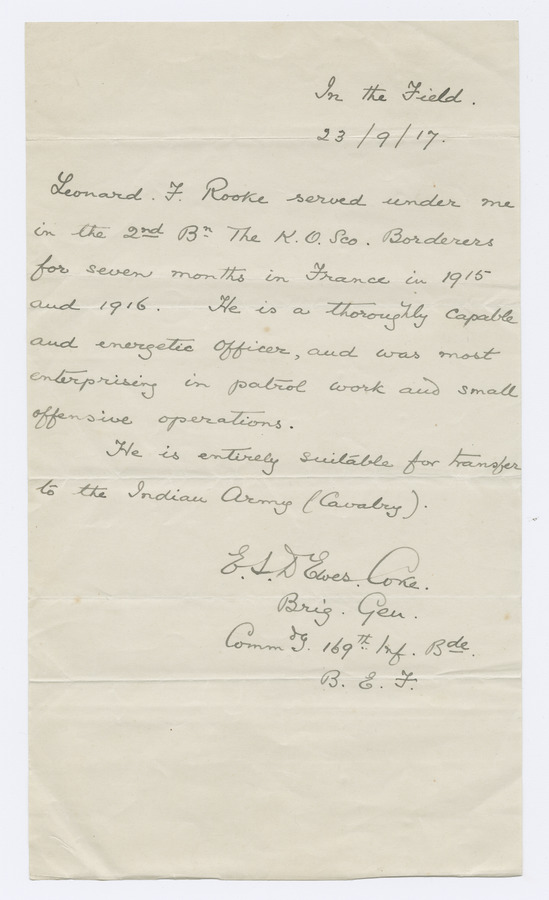 In the Field.
23/9/17.
Leonard. F. Rooke served under me
in the 2nd Bn The K.O.Sco. Borderers
for seven months in France in 1915
and 1916. He is a thoroughly capable
and energetic officer, and was most
enterprising in patrol work and small
offensive operations.
He is entirely suitable for transfer
to the Indian Army (Cavalry).
E.S.D'Ewes.Coke.
Brig. Gen.
Commdg. 169th Inf. Bde.
B. E. F.